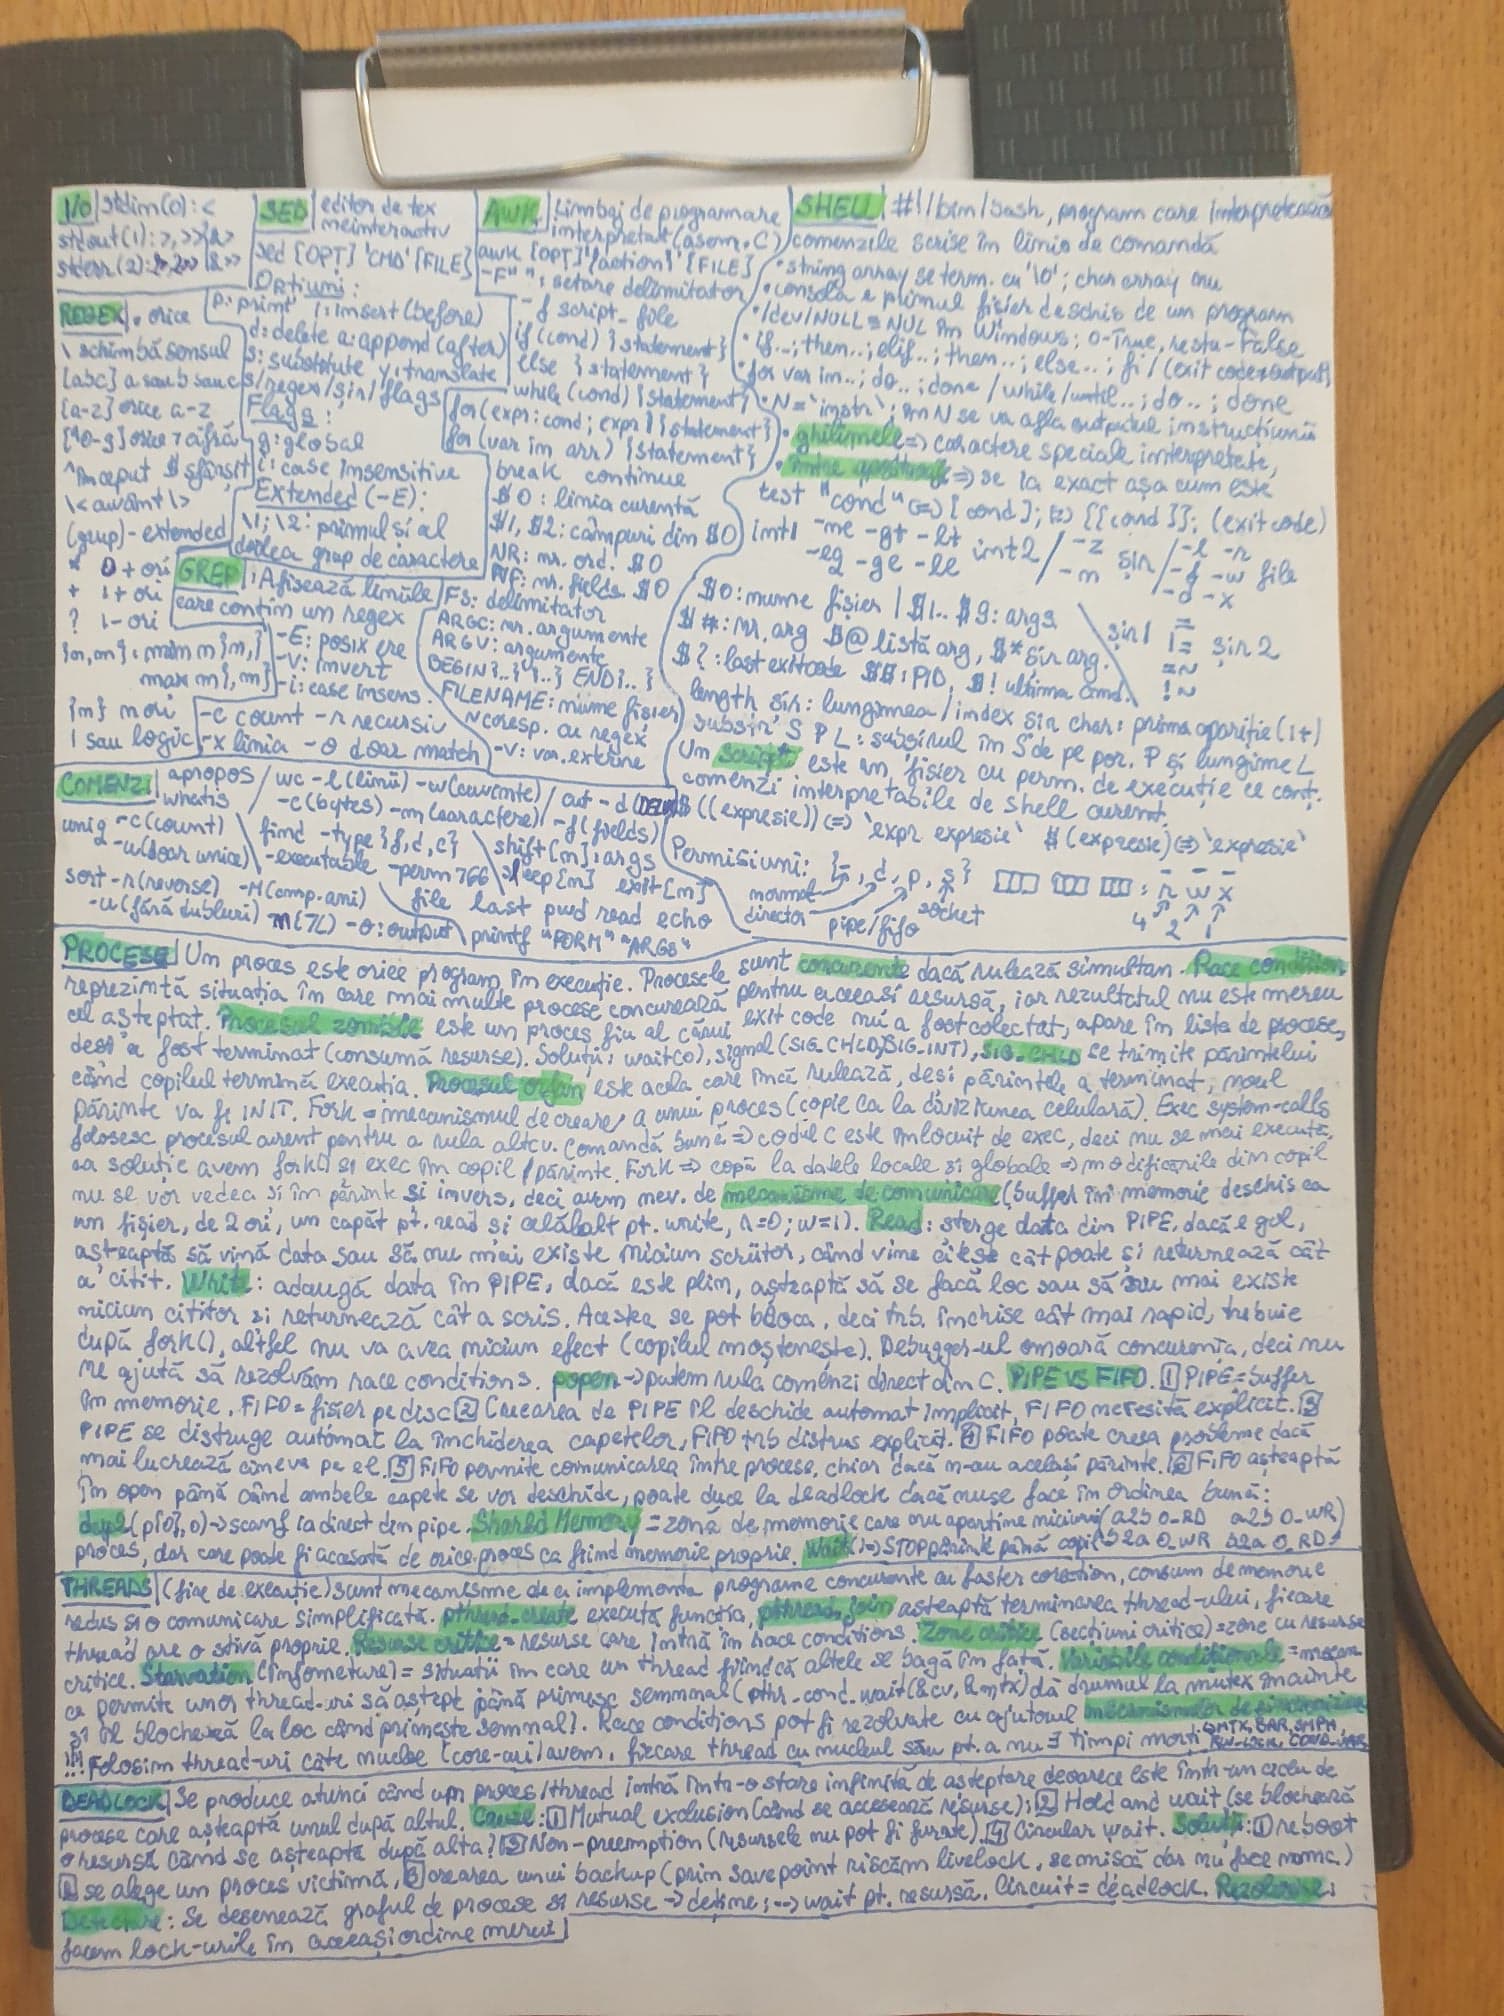 I/O stdin(0): <
stdout(1): >, >> &>
stderr(2): 2>, 2>> &>>
SED editor de tex
neinteractiv
sed [OPT] 'CMD' [FILE]
Opțiuni:
p: print i: insert (before)
d: delete a: append (after)
s: substitute y: translate
s/regex/șir/flags
Flags:
g: global
i: case insensitive
Extended (-E):
\1; \2: primul și al
doilea grup de caractere
AWK Limbaj de programare
interpretat (asem. C)
awk [OPT] '{action}' [FILE]
-F" ": setare delimitator
-f script-file
if (cond) {statement}
else {statement}
while (cond) {statement}
for (expr; cond; expr) {statement}
for (var in arr) {statement}
break continue
$0: linia curentă
$1, $2: câmpuri din $0
NR: nr. ord. $0
NF: nr. fields $0
FS: delimitator
ARGC: nr. argumente
ARGV: argumente
BEGIN{..} {..} END{..}
FILENAME: nume fișier
~ coresp. cu regex
-v: var. externe
REGEX . orice
\ schimbă sensul
[abc] a sau b sau c
[a-z] orice a-z
[^0-9] orice ≠ cifră
^început $ sfârșit
\< cuvânt \>
(grup) - extended
* 0+ ori
+ 1+ ori
? 1- ori
{n,m}: min n {n,}
max m {,m}
{n} n ori
| sau logic
GREP: Afișează liniile
care conțin un regex
-E: posix ere
-v: invert
-i: case insens.
-c count -r recursiv
-x linia -o doar match
SHELL #!/bin/bash, program care interpretează
comenzile scrise în linia de comandă
• string array se term. cu '\0'; char array nu
• consola e primul fișier deschis de un program
• /dev/NULL ≡ NUL în Windows; 0-True, restu-False
• if..; then..; elif..; then..; else..; fi / (exit code+output)
• for var in..; do..; done / while/until..; do..; done
• N=`instr`; în N se va afla outputul instrucțiunii
• ghilimele => caractere speciale interpretate,
• între apostroafe => se ia exact așa cum este
test "cond" <=> [cond]; <=> [[cond]]; (exit code)
int1 -ne -gt -lt
-eq -ge -le int2 / -z -n șir / -e -r -f -w -d -x file
$0: nume fișier | $1..$9: args
$#: nr. arg $@ listă arg, $* șir arg.
$?: last exitcode $$: PID, $! ultima cmd.
șir1 = != =~ !~ șir2
length șir: lungimea / index șir char: prima apariție (1+)
substr S P L: subșirul în S de pe poz. P și lungime L
Un script* este un fișier cu perm. de execuție ce conț.
comenzi interpretabile de shell curent.
$((expresie)) <=> `expr expresie` $(expresie) <=> `expresie`
Permisiuni: {-, d, p, s} : r w x
normal
director pipe/fifo socket 4 2 1
COMENZI apropos / wc -l (linii) -w (cuvinte) / cut -d (DELIM)
whatis -c (bytes) -m (caractere) -f (fields)
uniq -c (count) find -type {f,d,c} shift [n]: args
-u (doar unice) -executable -perm 766 sleep [n] exit [n]
sort -r (reverse) -M (comp. ani) file last pwd read echo
-u (fără dubluri) -o: output printf "FORM" "ARGS"
PROCESE Un proces este orice program în execuție. Procesele sunt concurente dacă rulează simultan. Race condition
reprezintă situația în care mai multe procese concurează pentru aceeași resursă, iar rezultatul nu este mereu
cel așteptat. Procesul zombie este un proces fiu al cărui exit code nu a fost colectat, apare în lista de procese,
deși a fost terminat (consumă resurse). Soluții: wait(0), signal (SIG_CHLD, SIG_INT), SIG_CHLD se trimite părintelui
când copilul termină execuția. Procesul orfan este acela care încă rulează, deși părintele a terminat, noul
părinte va fi INIT. Fork = mecanismul de creare a unui proces (copie ca la diviziunea celulară). Exec system-calls
folosesc procesul curent pentru a rula altcv. Comandă bună => codul C este înlocuit de exec, deci nu se mai execută,
ca soluție avem fork() și exec în copil/părinte. Fork => copii la datele locale și globale => modificările din copil
nu se vor vedea și în părinte și invers, deci avem nev. de mecanisme de comunicare (buffer în memorie deschis ca
un fișier, de 2 ori, un capăt pt. read și celălalt pt. write, r=0; w=1). Read: șterge data din PIPE, dacă e gol,
așteaptă să vină data sau să nu mai existe niciun scriitor, când vine citește cât poate și returnează cât
a citit. Write: adaugă data în PIPE, dacă este plin, așteaptă să se facă loc sau să nu mai existe
niciun cititor și returnează cât a scris. Acestea se pot bloca, deci trb. închise cât mai rapid, trebuie
după fork(), altfel nu va avea niciun efect (copilul moștenește). Debugger-ul omoară concurența, deci nu
ne ajută să rezolvăm race conditions. popen -> putem rula comenzi direct din C. PIPE VS FIFO. 1 PIPE = buffer
în memorie. FIFO = fișier pe disc 2 Crearea de PIPE îl deschide automat implicit, FIFO necesită explicit. 3
PIPE se distruge automat la închiderea capetelor, FIFO trb distrus explicit. 4 FIFO poate crea probleme dacă
mai lucrează cineva pe el. 5 FIFO permite comunicarea între procese, chiar dacă n-au același părinte. 6 FIFO așteaptă
în open până când ambele capete se vor deschide, poate duce la deadlock dacă nu se face în ordinea bună:
dup2(p[0],0) -> scanf ia direct din pipe. Shared Memory = zonă de memorie care nu aparține niciunui (a2b O_RD a2b O_WR)
proces, dar care poate fi accesată de orice proces ca fiind memorie proprie. Wait() -> STOP părinte până copil b2a O_WR b2a O_RD
THREADS (fire de execuție) sunt mecanisme de a implementa programe concurente cu faster creation, consum de memorie
redus și o comunicare simplificată. pthread_create execută funcția, pthread_join așteaptă terminarea thread-ului, fiecare
thread are o stivă proprie. Resurse critice = resurse care intră în race conditions. Zone critice (secțiuni critice) = zone cu resurse
critice. Starvation (înfometare) = situații în care un thread fiindcă altele se bagă în față. Variabile condiționale = mecan.
ce permite unor thread-uri să aștepte până primesc semnal (pthr_cond_wait(&cv, &mtx) dă drumul la mutex înainte
și îl blochează la loc când primește semnal). Race conditions pot fi rezolvate cu ajutorul mecanismelor de sincronizare
!!! Folosim thread-uri câte nuclee (core-uri) avem, fiecare thread cu nucleul său pt. a nu ∃ timpi morți MTX, BAR, SMPH, RW-LOCK, COND_VAR
DEADLOCK Se produce atunci când un proces/thread intră într-o stare infinită de așteptare deoarece este într-un ciclu de
procese care așteaptă unul după altul. Cauze: 1 Mutual exclusion (când se accesează resurse); 2 Hold and wait (se blochează
o resursă când se așteaptă după alta) 3 Non-preemption (resursele nu pot fi furate) 4 Circular wait. Soluții: 1 reboot
2 se alege un proces victimă, 3 crearea unui backup (prin savepoint riscăm livelock, se mișcă dar nu face nimic)
Detectare: Se desenează graful de procese și resurse -> deține; --> wait pt. resursă. Circuit = deadlock. Rezolvare:
facem lock-urile în aceeași ordine mereu